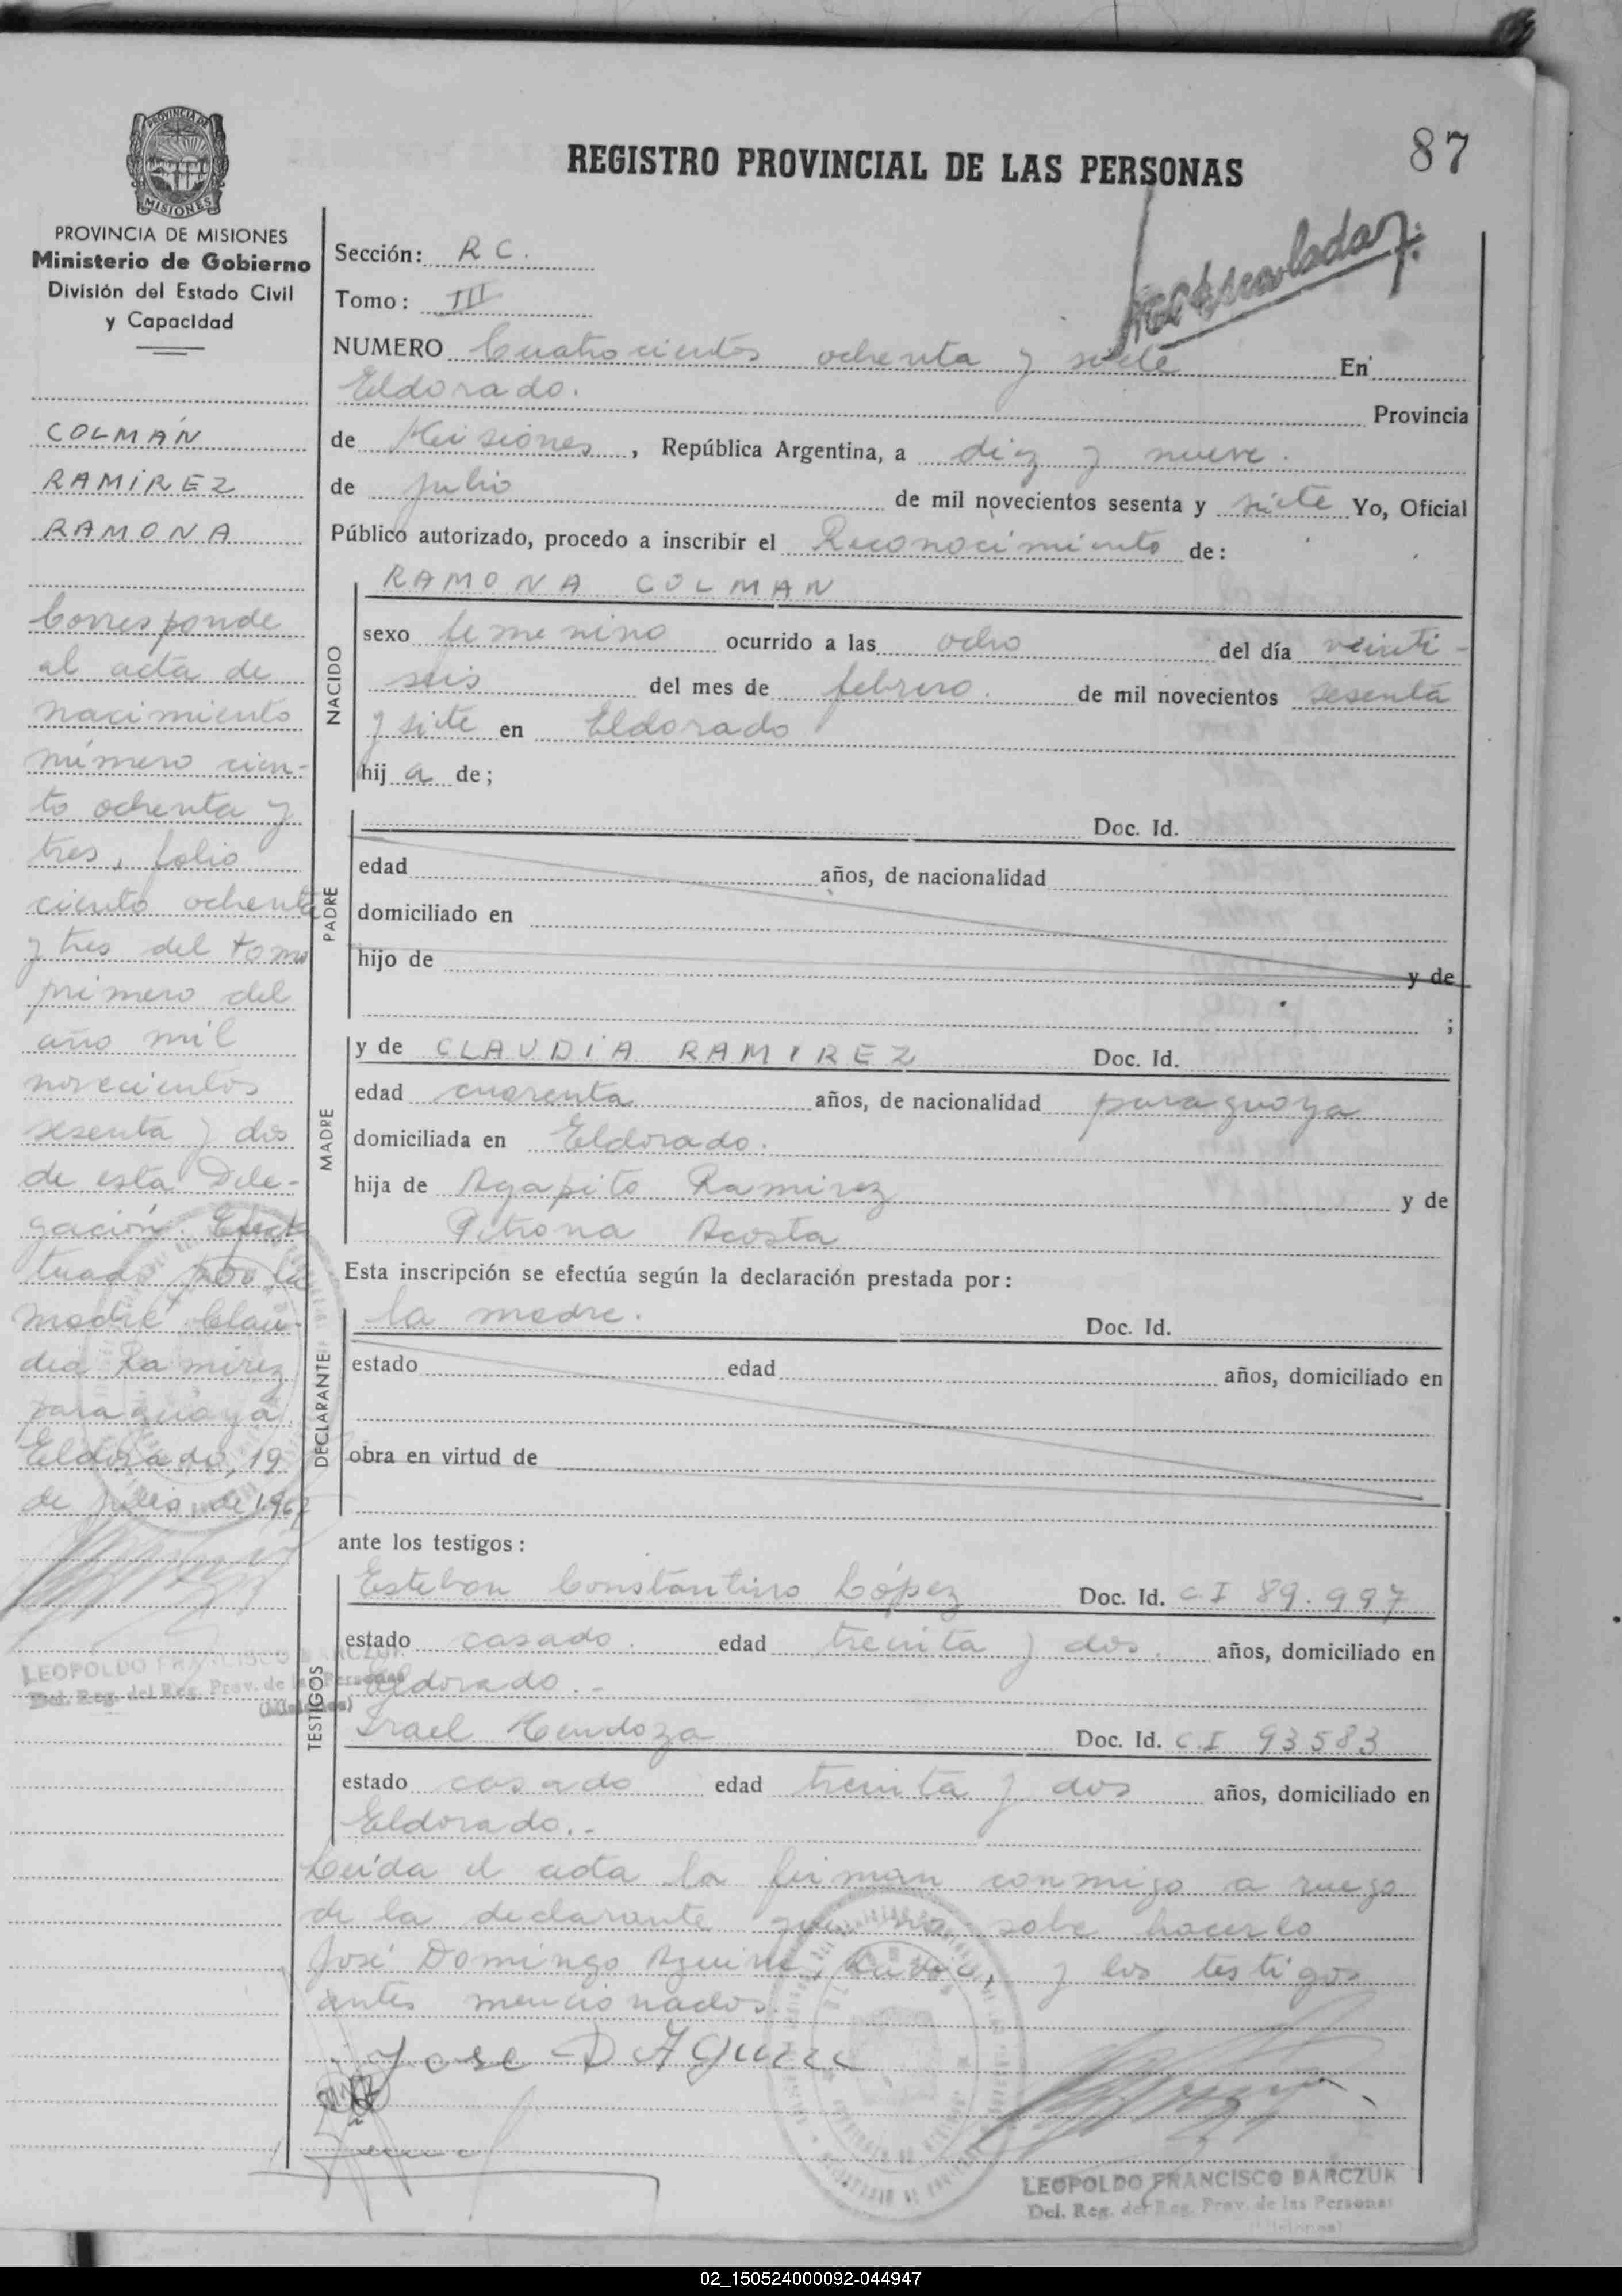 87
REGISTRO PROVINCIAL DE LAS PERSONAS
PROVINCIA DE
MISIONES
PROVINCIA DE MISIONES
Ministerio de Gobierno
División del Estado Civil
y Capacidad
COLMÁN
RAMÍREZ
RAMONA
Corresponde
al acta de
nacimiento
número cien-
to ochenta y
tres, folio
ciento ochenta
y tres del tomo
primero del
año mil
novecientos
sesenta y dos
de esta Dele-
gación. Efect
tuado por la
madre Clau-
dia Ramírez
paraguaya
Eldorado, 19
de julio de 1967
LEOPOLDO FRANCISCO BARCZUK
Del. Reg. del Reg. Prov. de las Personas
(Misiones)
Sección: R C.
Tomo: III
NUMERO Cuatrocientos ochenta y siete En
Eldorado. Provincia
de Misiones, República Argentina, a diez y nueve.
de julio de mil novecientos sesenta y siete Yo, Oficial
Público autorizado, procedo a inscribir el Reconocimiento de:
NACIDO
RAMONA COLMAN
sexo femenino ocurrido a las ocho del día veinti-
seis del mes de febrero. de mil novecientos sesenta
y siete en Eldorado
hija de;
PADRE
Doc. Id.
edad años, de nacionalidad
domiciliado en
hijo de y de
;
MADRE
y de CLAUDIA RAMIREZ Doc. Id.
edad cuarenta años, de nacionalidad paraguaya
domiciliada en Eldorado.
hija de Agapito Ramirez y de
Petrona Acosta
Esta inscripción se efectúa según la declaración prestada por:
DECLARANTE
la madre. Doc. Id.
estado edad años, domiciliado en
obra en virtud de
ante los testigos:
TESTIGOS
Esteban Constantino López Doc. Id. C I 89.997
estado casado. edad treinta y dos. años, domiciliado en
Eldorado.-
Irael Mendoza Doc. Id. C.I 93583
estado casado edad treinta y dos años, domiciliado en
Eldorado.-
Leída el acta la firman conmigo a ruego
de la declarante que no sabe hacerlo
José Domingo Aguirre, y los testigos
antes mencionados.
Jose D Aguirre
LEOPOLDO FRANCISCO BARCZUK
Del. Reg. del Reg. Prov. de las Personas
(Misiones)
02_150524000092-044947